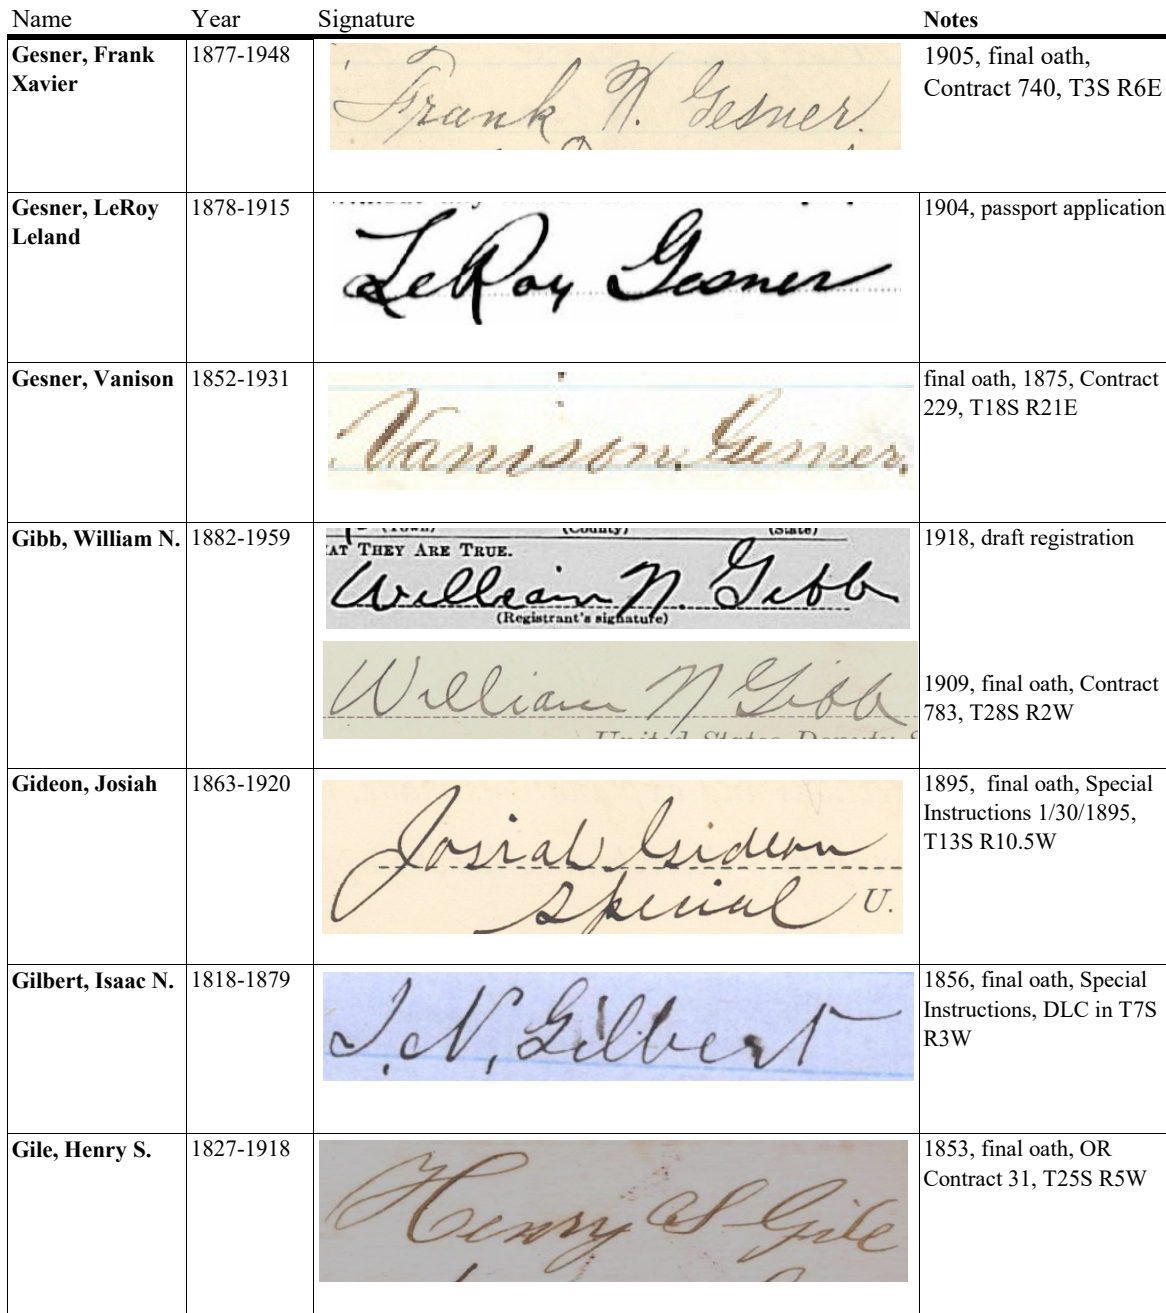 Name Year Signature Notes
Gesner, Frank Xavier 1877-1948 Frank X. Gesner. 1905, final oath, Contract 740, T3S R6E
Gesner, LeRoy Leland 1878-1915 LeRoy Gesner 1904, passport application
Gesner, Vanison 1852-1931 Vanison Gesner, final oath, 1875, Contract 229, T18S R21E
Gibb, William N. 1882-1959 (Town) (County) (State)
AT THEY ARE TRUE.
William N. Gibb
(Registrant's signature)
1918, draft registration
William N Gibb
United States Deputy S
1909, final oath, Contract 783, T28S R2W
Gideon, Josiah 1863-1920 Josiah Gideon
special U.
1895, final oath, Special Instructions 1/30/1895, T13S R10.5W
Gilbert, Isaac N. 1818-1879 I. N. Gilbert 1856, final oath, Special Instructions, DLC in T7S R3W
Gile, Henry S. 1827-1918 Henry S Gile 1853, final oath, OR Contract 31, T25S R5W